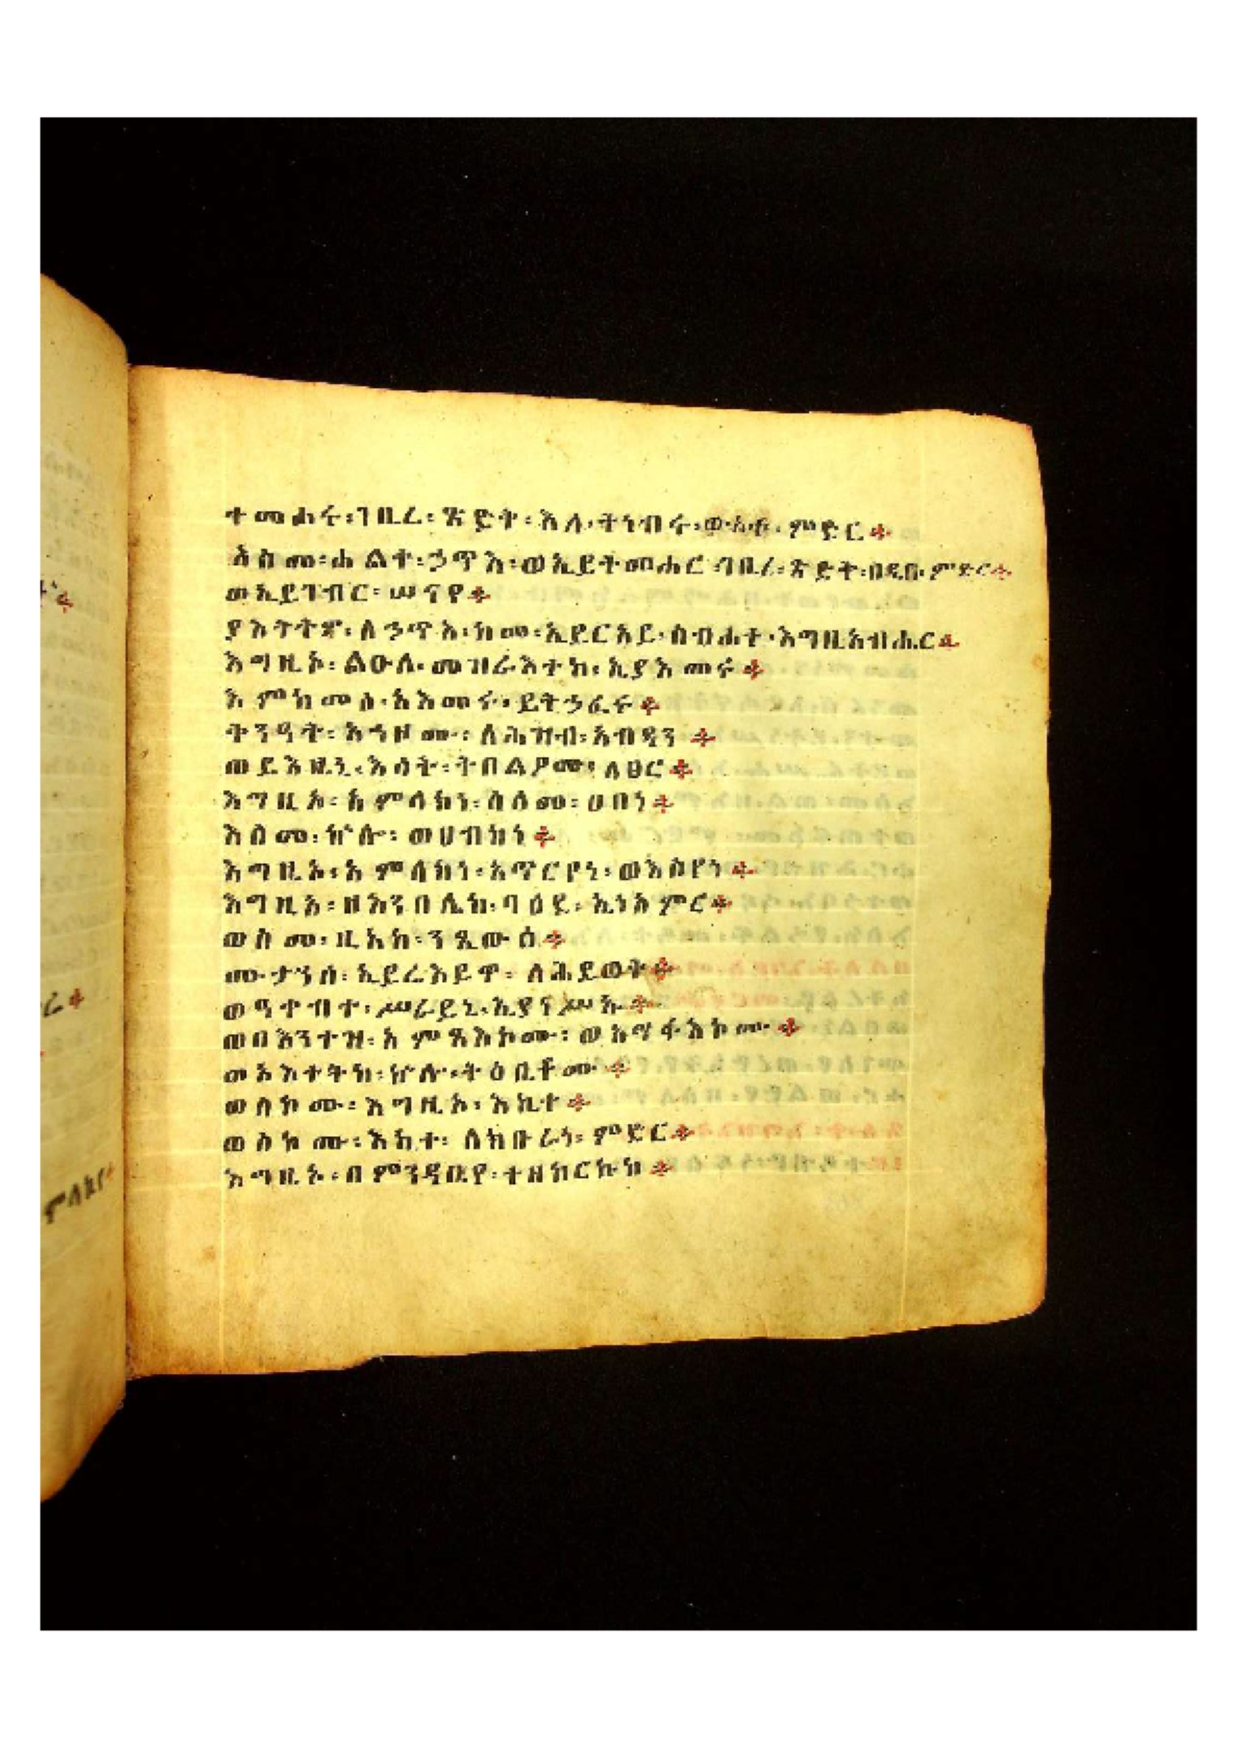 ተመሐሩ፡ገቢረ፡ጽድቅ፡እለ፡ትነብሩ፡ውስቴ፡ምድር።
እስመ፡ሐልቀ፡ኃጥእ፡ወኢይትመሐር፡ገቢረ፡ጽድቅ፡በዲበ፡ምድር።
ወኢይገብር፡ሠናየ።
ያእትትዎ፡ለኃጥእ፡ከመ፡ኢይርአይ፡ስብሐተ፡እግዚአብሔር።
እግዚኦ፡ልዑል፡መዝራእትከ፡ኢያእመሩ።
እምከመሰ፡አእመሩ፡ይትኃፈሩ።
ቅንዓት፡አኀዞሙ፡ለሕዝብ፡አብዳን።
ወይእዜኒ፡እሳት፡ትበልዖሙ፡ለፀር።
እግዚኦ፡አምላክነ፡ሰላመ፡ሀበነ።
እስመ፡ኵሎ፡ወሀብከነ።
እግዚኦ፡አምላክነ፡አጥርየነ፡ወእስየነ።
እግዚኦ፡ዘእንበሌከ፡ባዕደ፡ኢነአምር።
ወስመ፡ዚአከ፡ንጼውዕ።
ሙታንሰ፡ኢይሬእይዋ፡ለሕይወት።
ወዓቀብተ፡ሥራይኒ፡ኢያነሥኡ።
ወበእንተዝ፡አምጻእኮሙ፡ወአማኅፈእኮሙ።
ወአእተትከ፡ኵሎ፡ትዕቢቶሙ።
ወስኮሙ፡እግዚኦ፡እኪተ።
ወስኮሙ፡እኪተ፡ለክቡራነ፡ምድር።
እግዚኦ፡በምንዳቤየ፡ተዘከርኩከ።